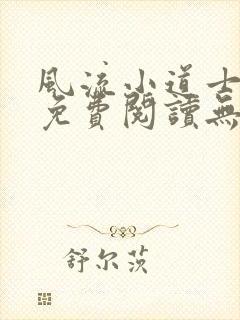 风流小道士
免費閱讀無
舒尔茨